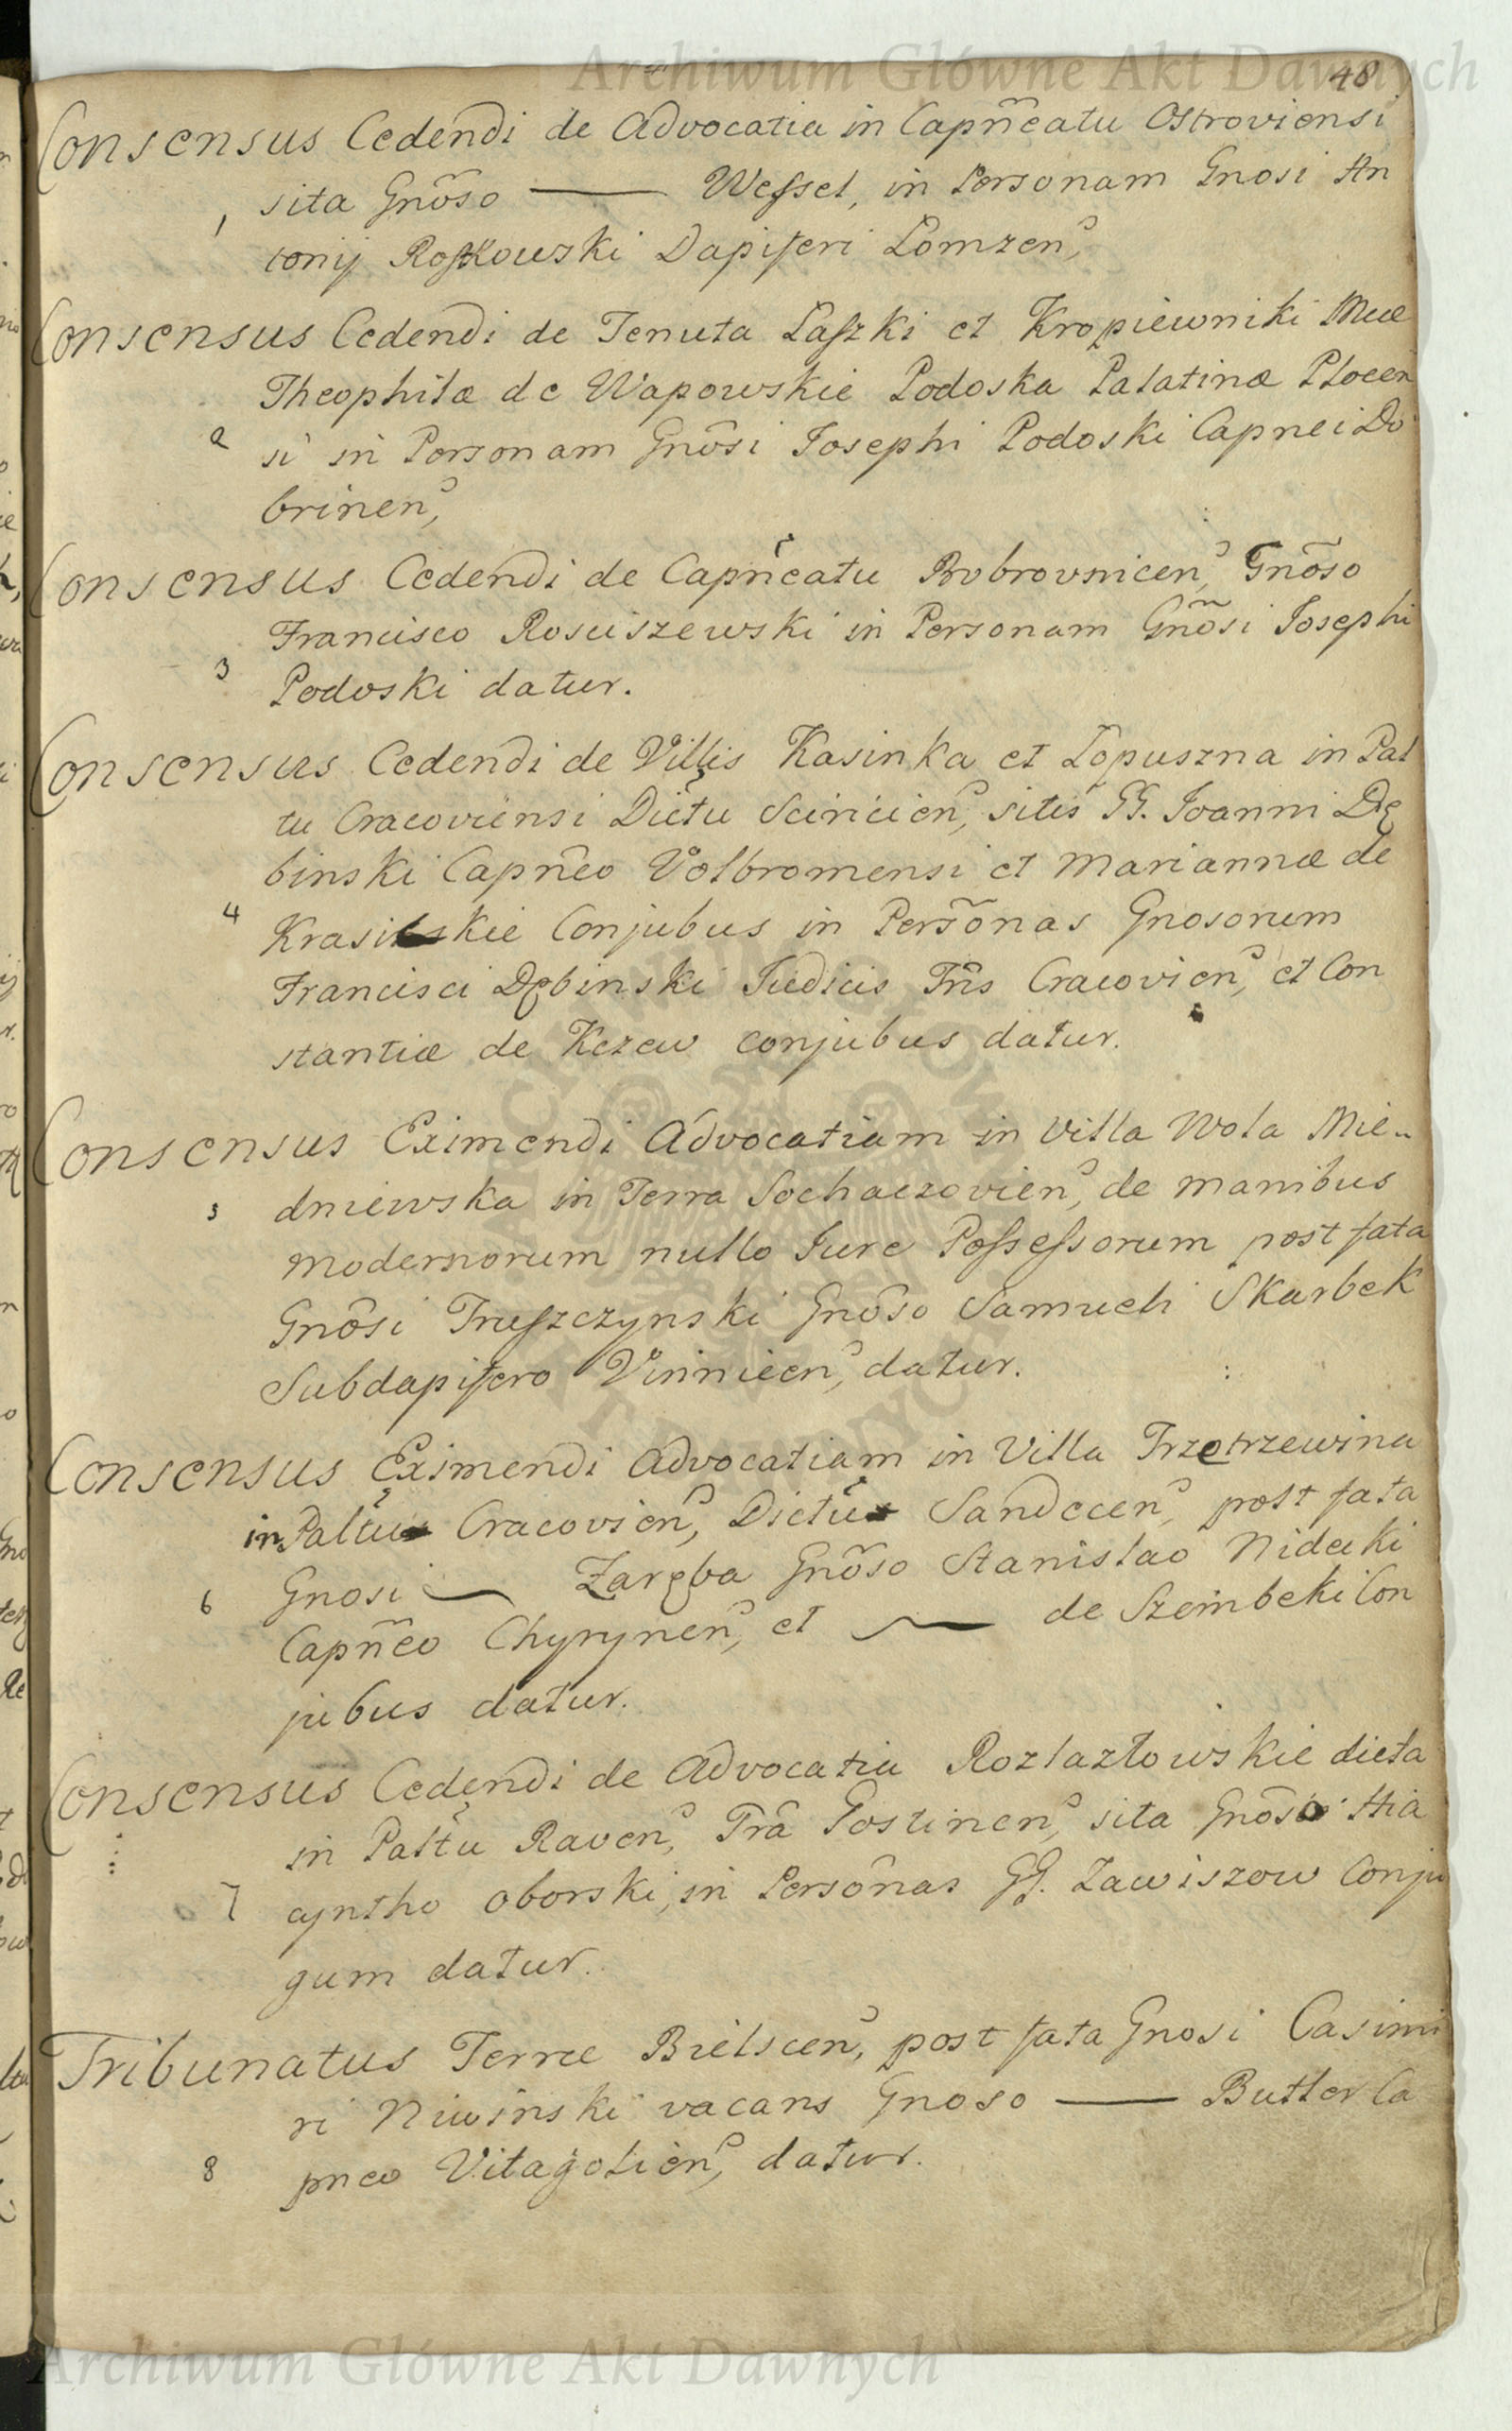 Archiwum Główne Akt Dawnych
48
Consensus Cedendi de Advocatia in Capñeatu Ostroviensi
1 sita Gnõso —— Weſsel, in Personam Gnosi An
tonij Roſtkowski Dapiferi Lomzen,
Consensus Cedendi de Tenuta Laſzki et Kropiewniki Mcæ
Theophilæ de Wapowskie Podoska Palatinæ Plocen
2 si in Personam Gnõsi Josephi Podoski Capnei Do
brinen,
Consensus Cedendi de Capñeatu Bobrovnicen, Gnõso
Francisco Rosciszewski in Personam Gnõsi Josephi
3 Podoski datur.
Consensus Cedendi de Villis Kasinka et Łopuszna in Pal
tu Cracoviensi Dictu Sciricien, sitis GG. Joanni Dę
binski Capñeo Volbromensi et Mariannæ de
4 Krasinskie Conjubus in Persõnas Gnosorum
Francisci Dębinski Judicis Trs Cracovien, et Con
stantiæ de Kezew conjubus datur.
Consensus Eximendi Advocatiam in Villa Wola Mie-
5 dniewska in Terra Sochaczovien, de manibus
modernorum nullo Jure Poſseſsorum post fata
Gnõsi Truſzczynski Gnõso Samueli Skarbek
Subdapifero Vinnicen, datur.
Consensus Eximendi Advocatiam in Villa Trzetrzewina
in Paltu Cracovien, Dictu Sandecen, post fata
6 Gnosi —— Zaręba Gnõso Stanislao Nidecki
Capñeo Chyrynen, et —— de Szembeki Con
jubus datur.
Consensus Cedendi de Advocatia Rozlazłowskie dicta
in Paltu Raven, Trâ Gostinen, sita Gnõso Hia
7 cyntho Oborski, in Persônas GG. Zawiszow Conju
gum datur.
Tribunatus Terræ Bielscen, post fata Gnosi Casimi
ri Niwinski vacans Gnoso —— Butler Ca
8 pneo Vitagolien, datur.
Archiwum Główne Akt Dawnych